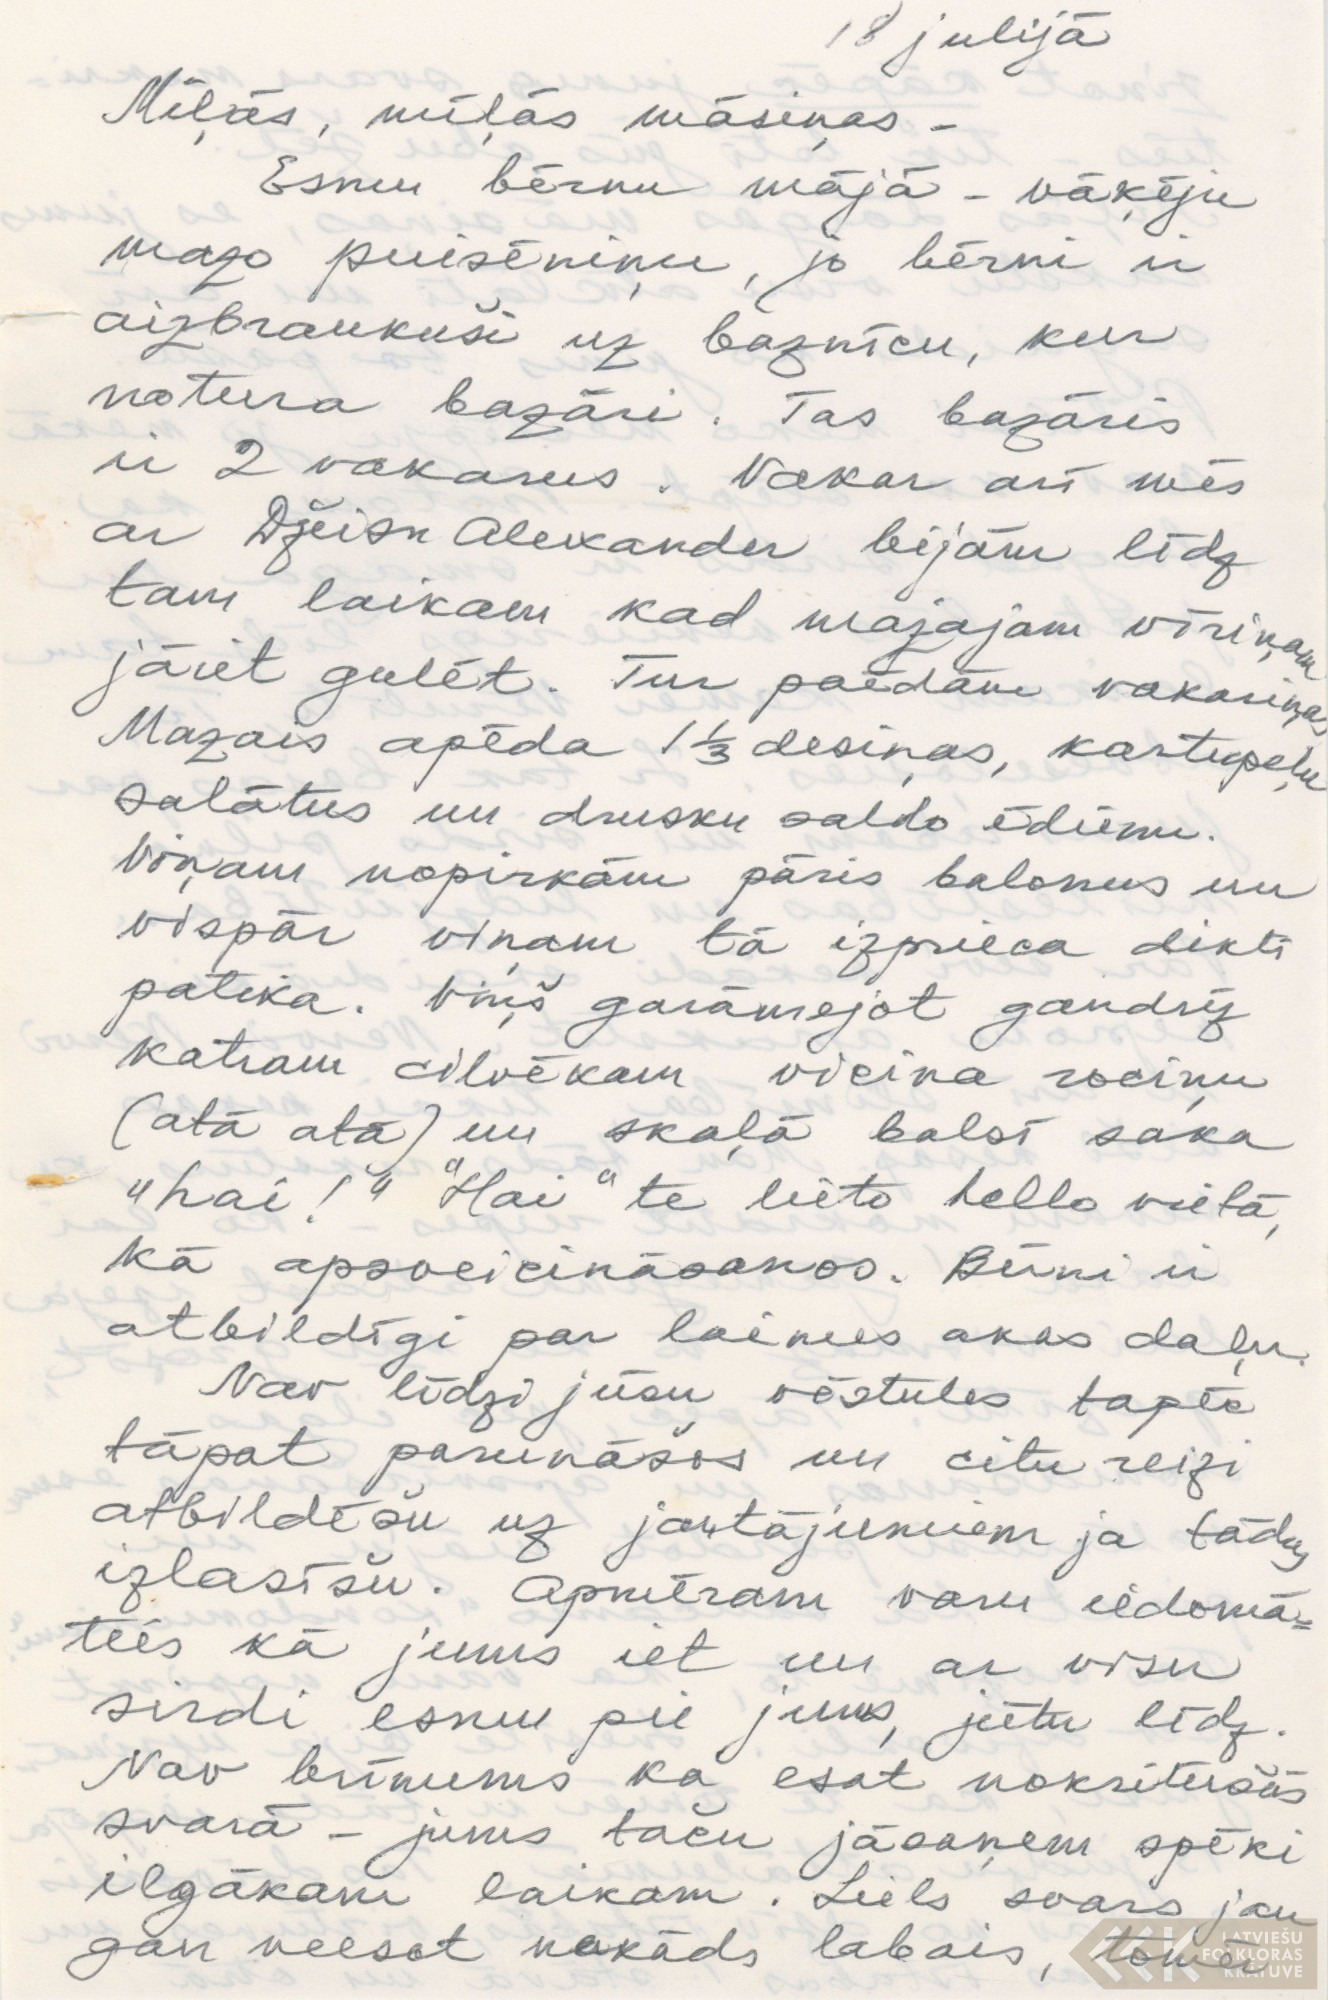 18 julijā
Mīļās, mīļās māsiņas -
Esmu bērnu mājā - vāķēju
mazo puisēniņu, jo bērni ir
aizbraukuši uz baznīcu, kur
notura bazāri. Tas bazāris
ir 2 vakarus. Vakar arī mēs
ar Džeisn Alexander bijām līdz
tam laikam kad mazajam vīriņam
jāiet gulēt. Tur paēdām vakariņas
Mazais apēda 1 1/3 desiņas, kartupeļu
salātus un drusku saldo ēdienu.
Viņam nopirkām pāris balonus un
vispār viņam tā izprieca dikti
patika. Viņš garāmejot gandrīz
katram cilvēkam vicina rociņu
(atā atā) un skaļā balsī saka
"hai!" "Hai" te lieto hello vietā,
kā apsveicināsanos. Bērni ir
atbildīgi par laimes akas daļu.
Nav līdzi jūsu vēstules tapēc
tāpat parunāšos un citu reizi
atbildēšu uz jautājumiem ja tādus
izlasīšu. Apmēram varu iedomā=
ties kā jums iet un ar visu
sirdi esmu pie jums, jūtu līdz.
Nav brīnums ka esat nokritušās
svarā - jums taču jāsaņem spēki
ilgākam laikam. Liels svars jau
gan neesot nekāds labais, tomēr
LATVIEŠU
FOLKLORAS
KRĀTUVE